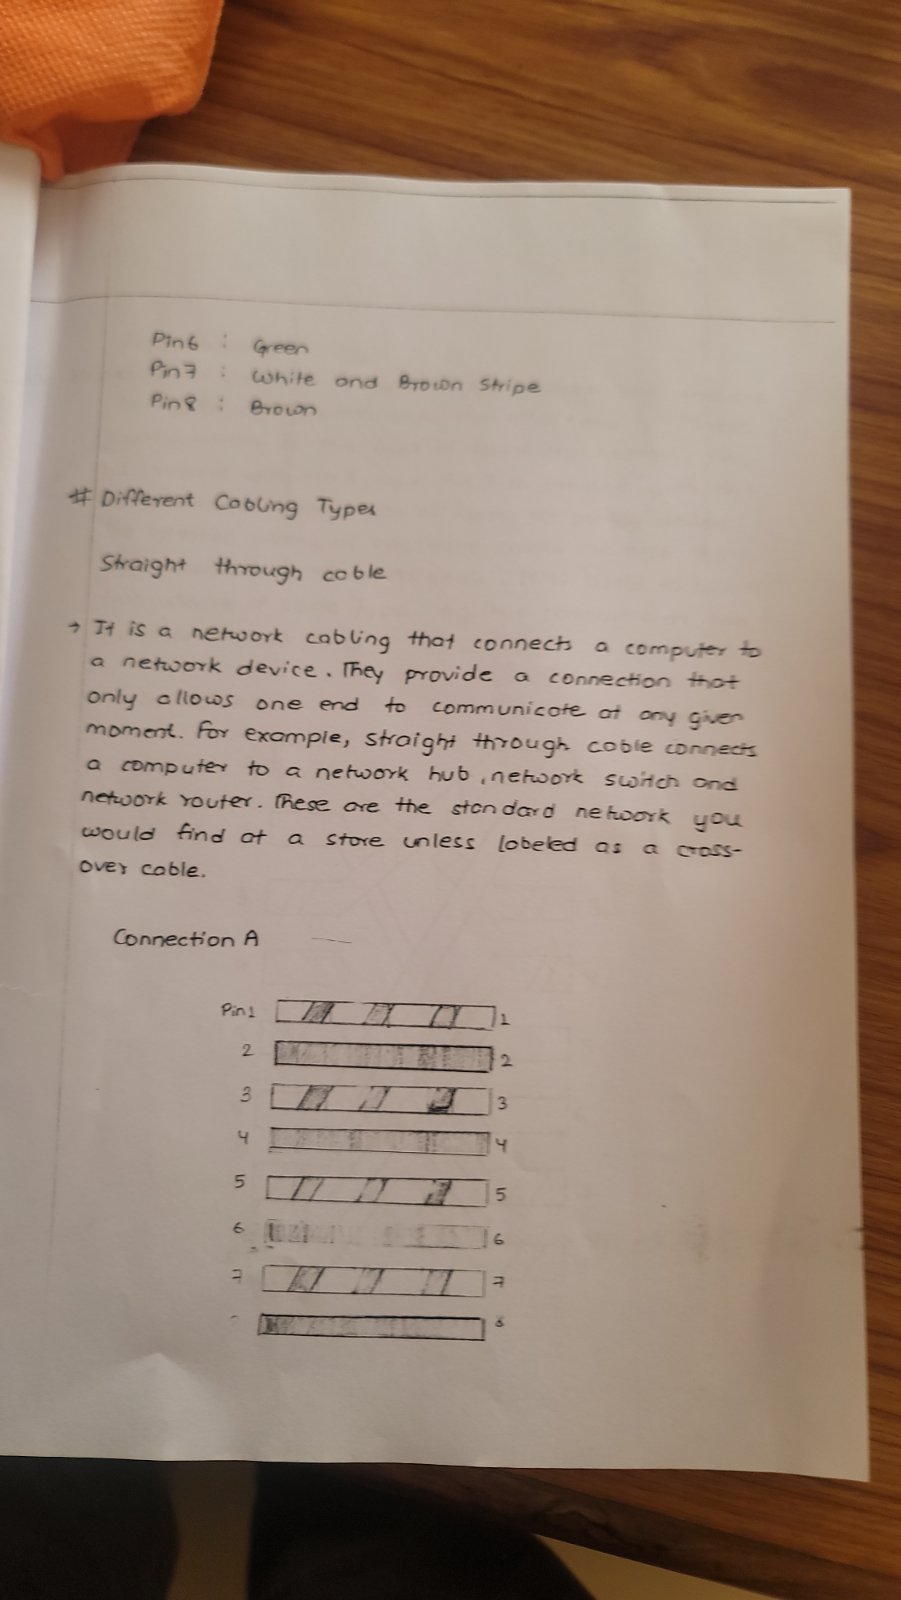 Pin6 : Green
Pin7 : White and Brown Stripe
Pin8 : Brown
# Different Cabling Types
Straight through cable
→ It is a network cabling that connects a computer to
a network device. They provide a connection that
only allows one end to communicate at any given
moment. For example, straight through cable connects
a computer to a network hub, network switch and
network router. These are the standard network you
would find at a store unless labeled as a cross-
over cable.
Connection A
Pin1 1
2 2
3 3
4 4
5 5
6 6
7 7
8